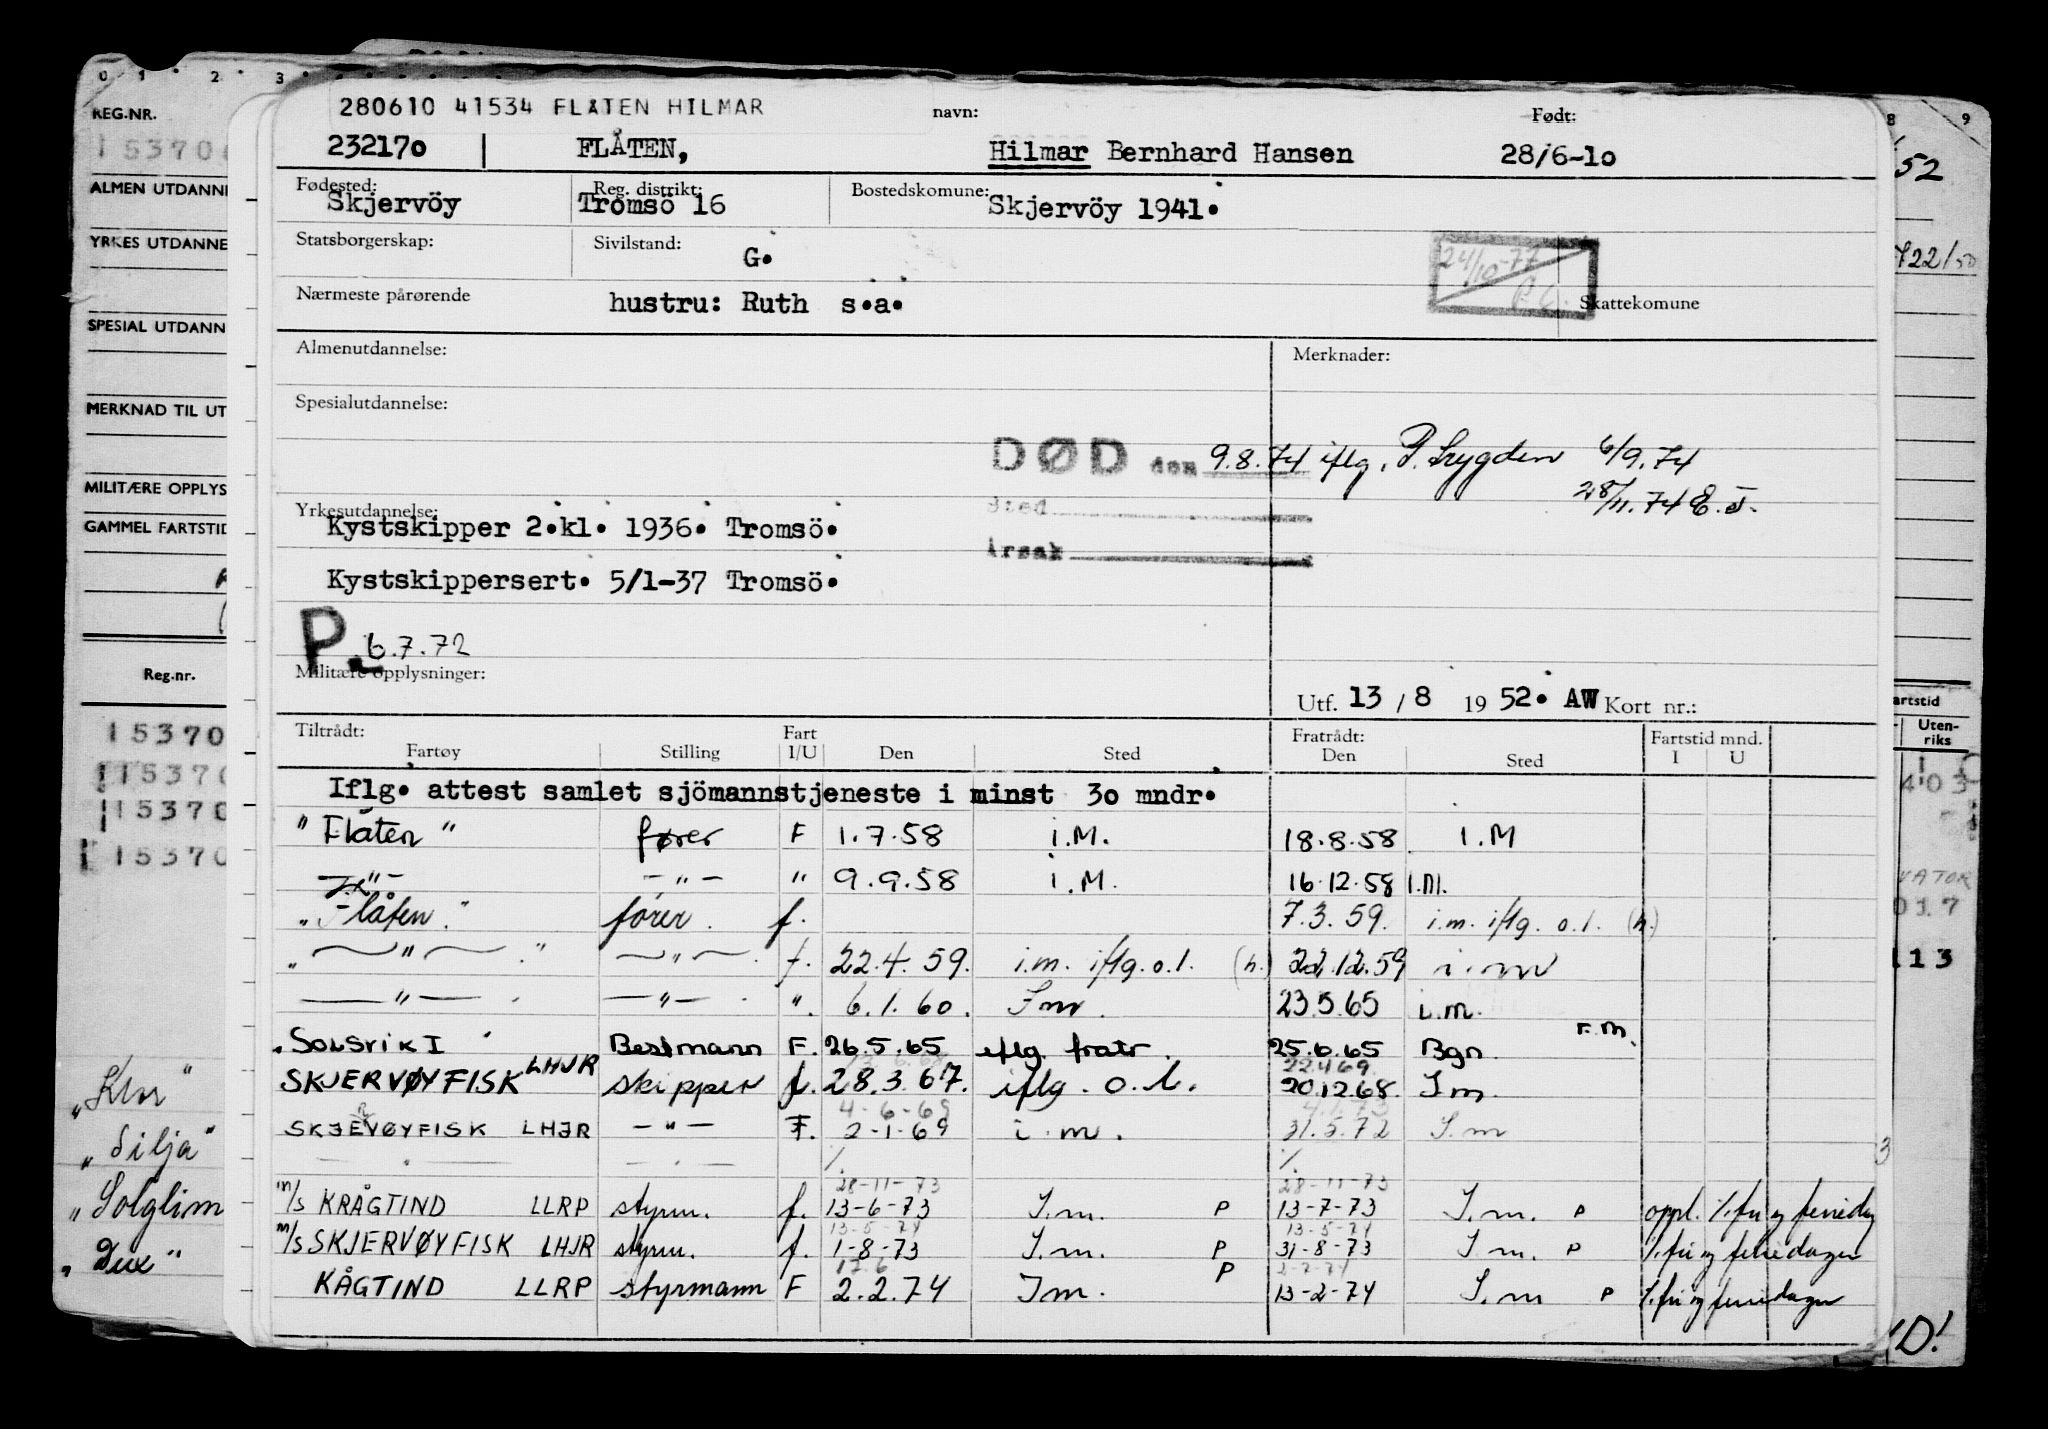 0 1 2 3
REG.NR.
ALMEN UTDANNE
YRKES UTDANNE
SPESIAL UTDANN
MERKNAD TIL UT
MILITÆRE OPPLYS
GAMMEL FARTSTID
Reg.nr.
15370
15370
15370
15370
"Klor"
"Silja"
"Solglimt
"Dux"
280610 41534 FLÅTEN HILMAR
navn:
Født:
232170 FLÅTEN, Hilmar Bernhard Hansen 28/6-10
Fødested: Skjervöy
Reg. distrikt: Tromsö 16
Bostedskomune: Skjervöy 1941.
Statsborgerskap:
Sivilstand: G.
24/10-77
Nærmeste pårørende hustru: Ruth s.a.
Skattekomune
Almenutdannelse:
Merknader:
Spesialutdannelse:
DØD den 9.8.74 iflg. P. Trygden 6/9.74
28/11.74 E.J.
Sted
Årsak
Yrkesutdannelse:
Kystskipper 2.kl. 1936. Tromsö.
Kystskippersert. 5/1-37 Tromsö.
P. 6.7.72
Militære opplysninger:
Utf. 13 / 8 19 52. AW Kort nr.:
Tiltrådt: Fart Fratrådt: Fartstid mnd.
Fartøy Stilling I/U Den Sted Den Sted I U
Iflg. attest samlet sjömannstjeneste i minst 30 mndr.
"Flåten" fører F 1.7.58 i.M. 18.8.58 I.M
—"— —"— " 9.9.58 i.M. 16.12.58 I.M.
"Flåten." fører. f. 7.3.59. i.m. iflg. o.l. (h.)
"—"—." —"—. f. 22.4.59. i.m. iflg.o.l. (h.) 22.12.59 i.m
—"—. —"—. ". 6.1.60. I m. 23.5.65 i.m.
"SOLSVIK I" Bestmann F. 26.5.65 iflg. fratr. 25.6.65 Bgn. F.M.
22.4.69.
SKJERVØYFISK LHJR skipper f. 28.3.67. iflg. o.l. 20.12.68. I m.
4-6-69 4.1.73
SKJERVØYFISK LHJR —"— F. 2-1-69 i.m. 31.5.72 I.m
—"— —"— %. %.
28-11-73 28-11-73
m/s KRÅGTIND LLRP styrm. f. 13-6-73 I.m. P 13-7-73 I.m. P oppl. %.fri og feriedag
13-5-74 13-5-74
m/s SKJERVØYFISK LHJR styrm. f. 1-8-73 I.m. P 31-8-73 I m. P %.fri og feriedager
17.6 2-7-74
KÅGTIND LLRP styrmann F 2.2.74 Im. P 13-2-74 I.m P %.fri og feriedager
8 9
52
722/50
artstid
Uten-
riks
403
VATOR
017
113
3
D!